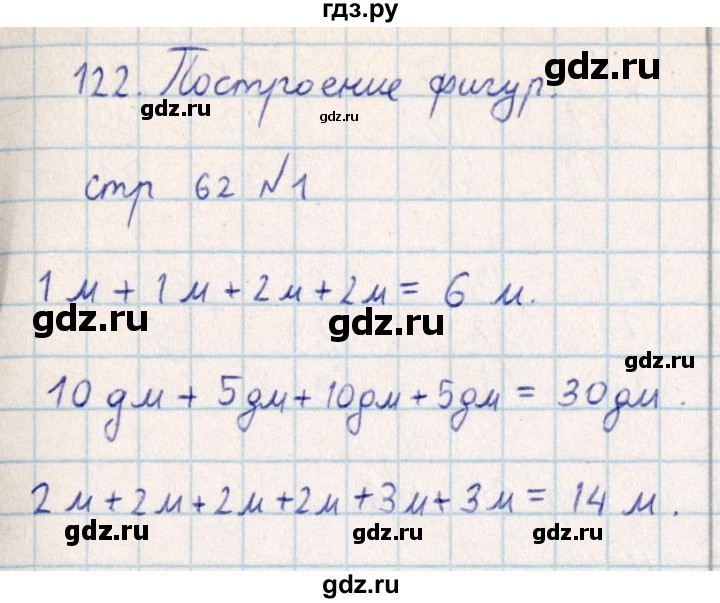 гдз.ру
122. Построение фигур.
gdz.ru
gdz.ru
gdz.ru
стр 62 №1
1 м + 1 м + 2 м + 2 м = 6 м.
gdz.ru
gdz.ru
gdz.ru
10 дм + 5дм + 10дм + 5дм = 30дм.
2 м + 2 м + 2 м + 2 м + 3 м + 3 м = 14 м.
gdz.ru
gdz.ru
gdz.ru
gdz.ru